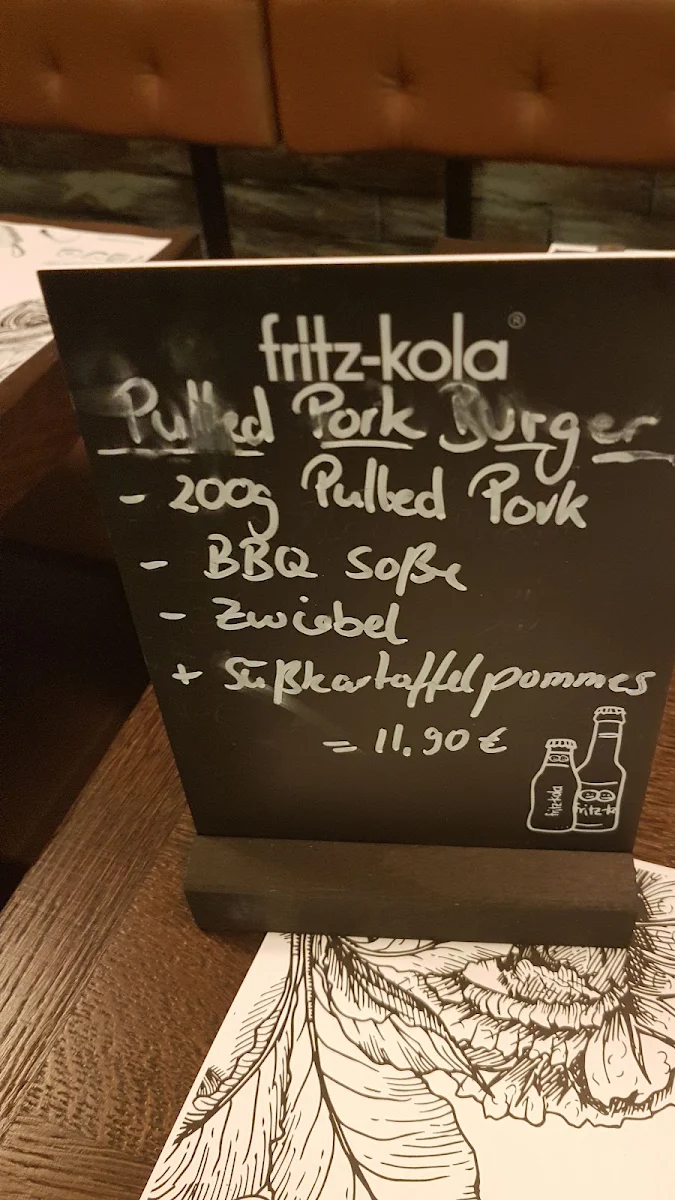 fritz-kola®
Pulled Pork Burger
- 200g Pulled Pork
- BBQ Soße
- Zwiebel
+ Süßkartoffelpommes
= 11,90 €
fritz-kola
fritz-k